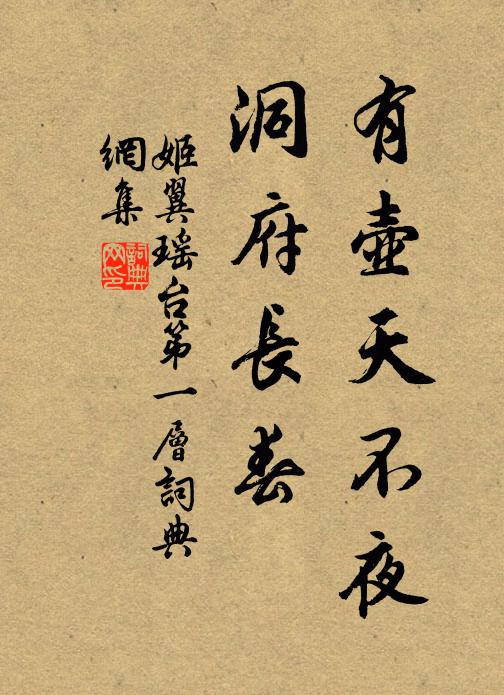 有壺天不夜
洞府長春
姬翼瑶台第一層詞典
網集
詞典
网印